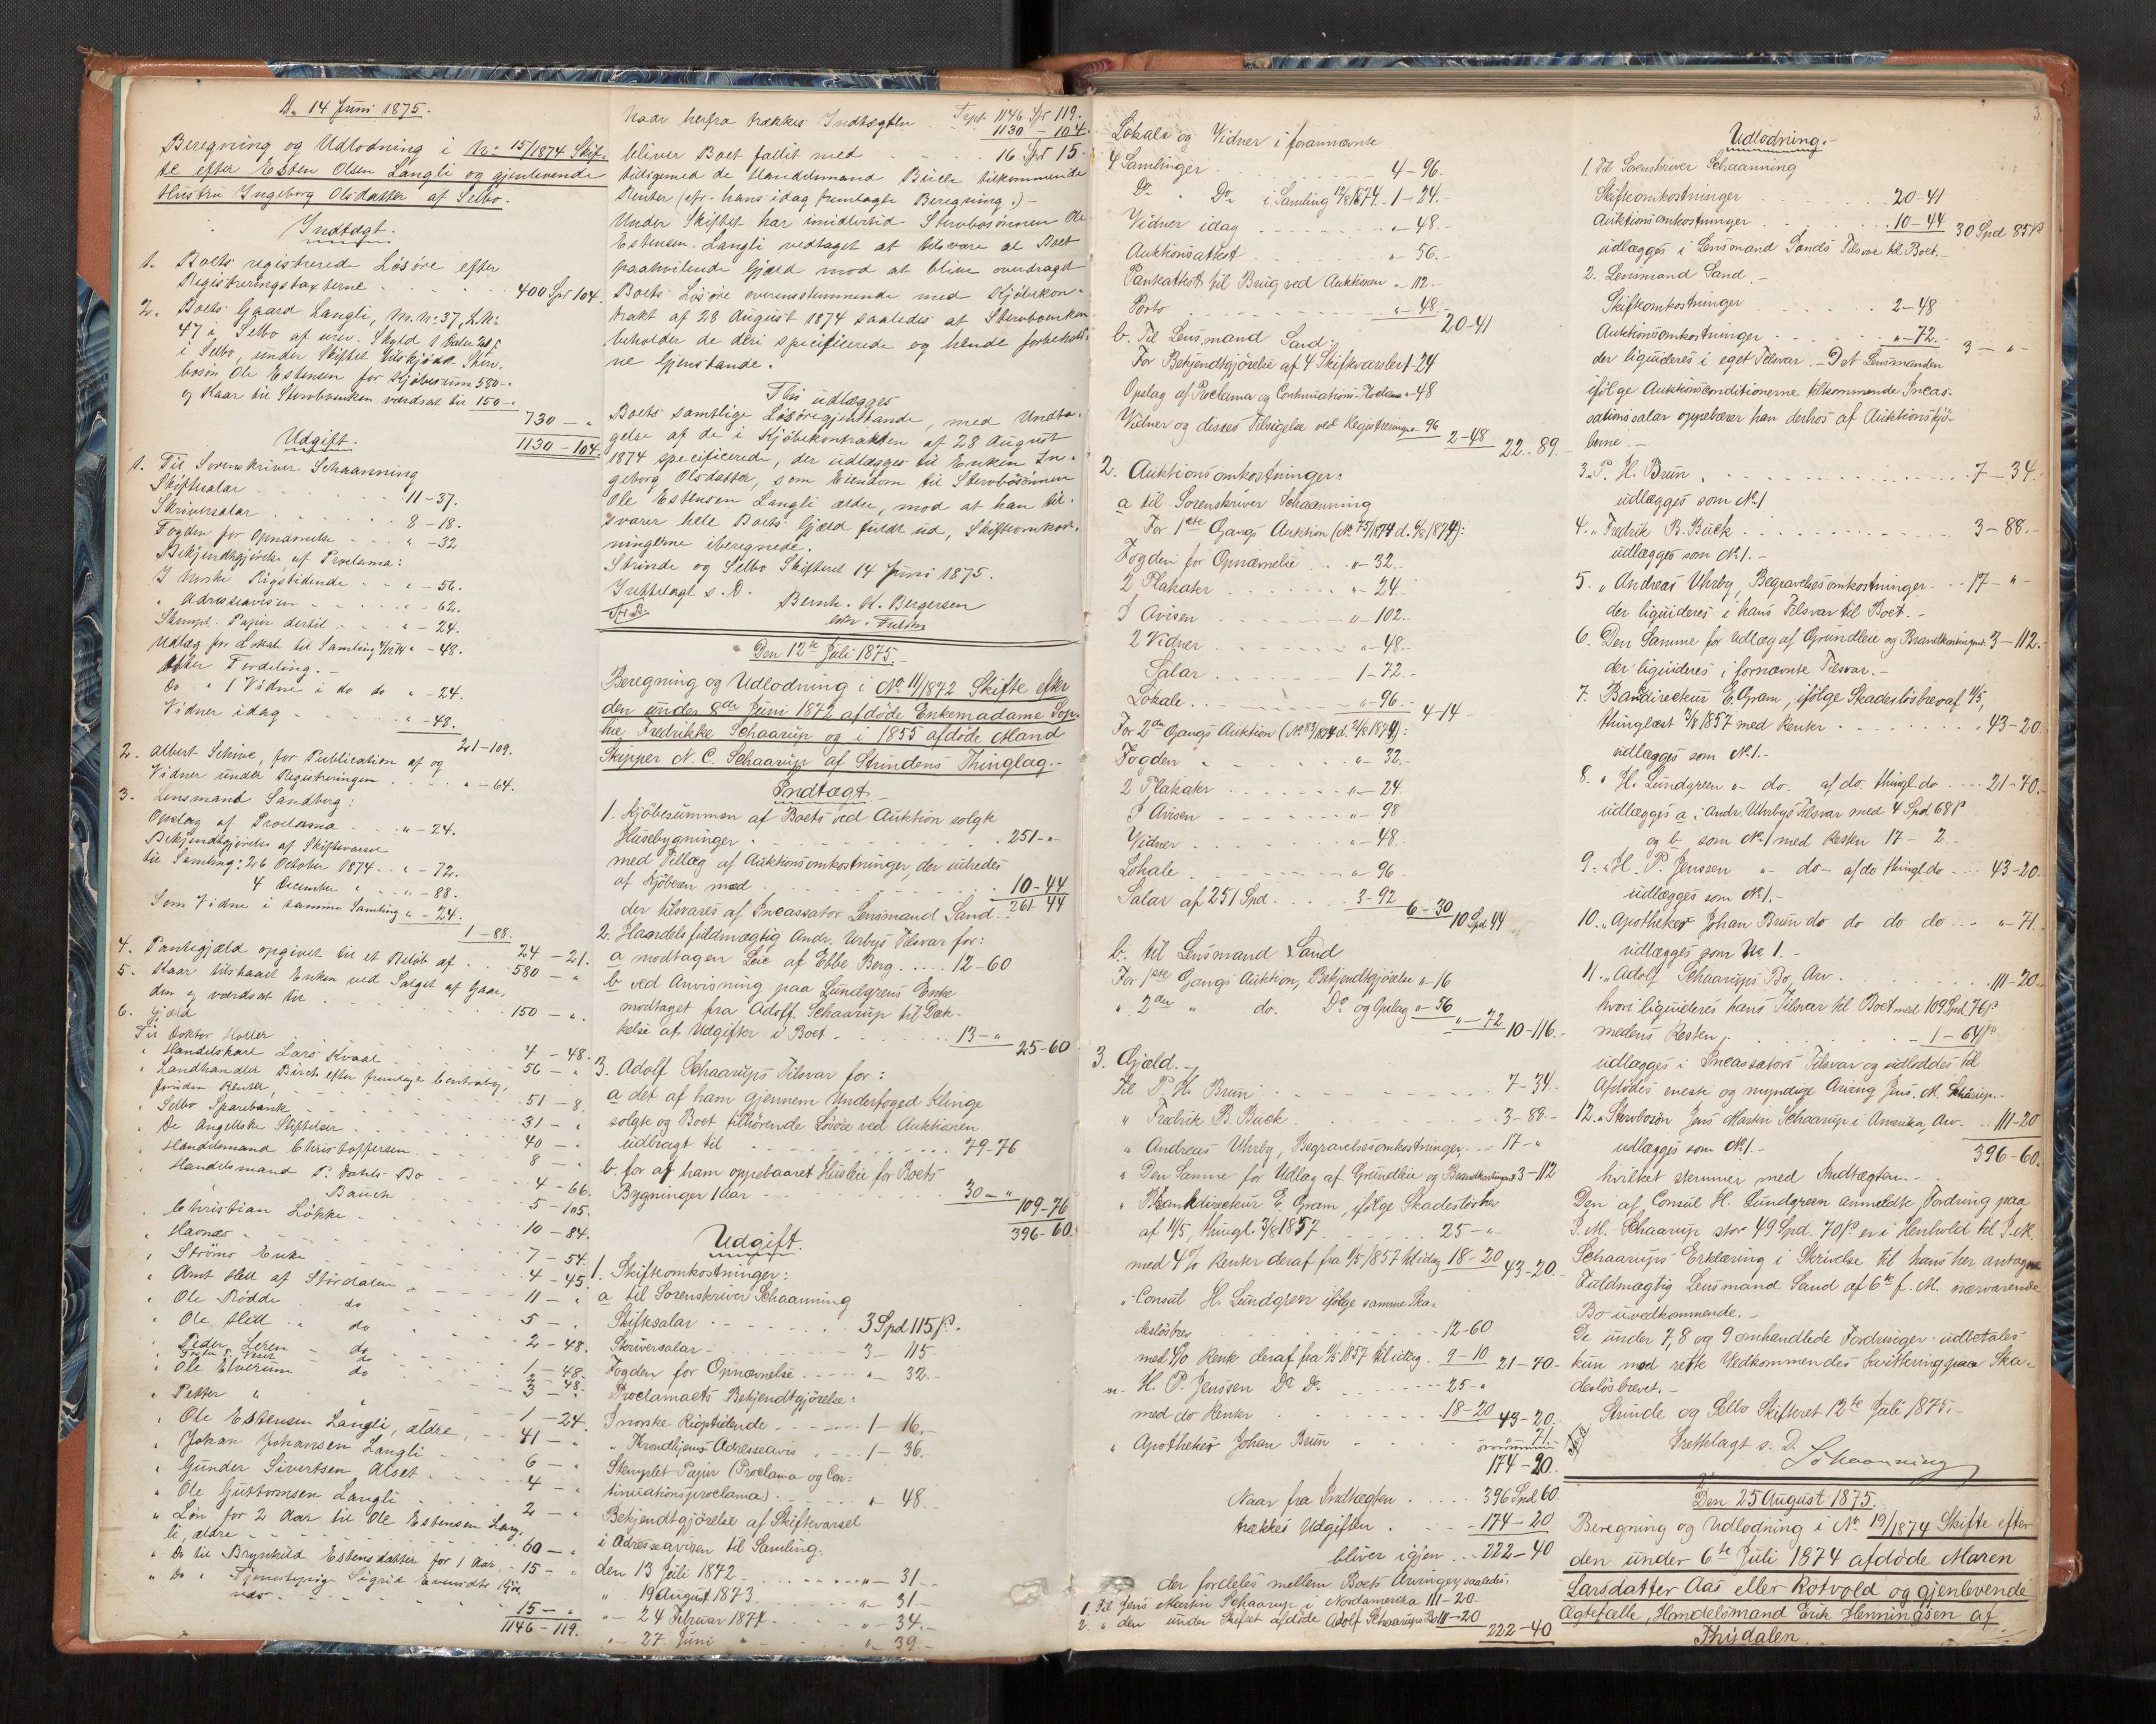 D. 14 Juni 1875.
Beregning og Udlodning i No 15/1874 Skif-
te efter Esten Olsen Langli og gjenlevende
Hustru Ingeborg Olsdatter af Selbo.
Indtægt.
1. Boets registrerede Løsøre efter
Registreringstaxterne 400 Spd 104.
2. Boets Gaard Langli, M. No 37, L. No
47 i Selbo af urev. Skyld 1 Daler
i Selbo, under Skiftet tilskjødet Sterv-
bosøn Ole Estensen for Kjøbesum 580-"
og Kaar til Stervboenken værdsat til 150-"
730 - "
1130-104.
Udgift.
1. Til Sorenskriver Schaanning
Skiftesalar 11-37.
Skriversalar 8-18.
Fogden for Opnævnelse " - 32
Bekjendtgjørelse af Proclama:
I Norske Rigstidende " - 56.
" Adresseavisen " - 62.
Stempl. Papir dertil " - 24.
Udlæg for Lokale til Samling " - 48.
efter Fordeling.
Do " 1 Vidne i do do " - 24.
Vidner idag " - 48.
21-109.
2. Albert Schive, for Publication af og
Vidner under Registreringen " - 64.
3. Lensmand Sandborg:
Opslag af Proclama " - 24.
Bekjendtgjørelse af Skiftevarsel
til Samling: 26 October 1874 " - 72.
4 December " " - 88.
Som Vidne i samme Samling " - 24.
1 - 88.
4. Pantegjæld opgivet til et Beløb af 24 - 21.
580 - "
5. Kaar tilstaaet Enken ved Salget af Gaar-
den og værdsat til 150 - "
6. Gjæld
Til Doktor Møller 4 - 48.
" Handelskarl Lars Kvaal 56 - "
" Landhandler Birch efter fremlagt Contrabog,
foruden Renter, 51 - 8.
" Selbo Sparebank 31 - "
" De Angellske Stiftelser 40 - "
" Handelsmand Christoffersen 8 - "
" Handelsmand P. Dahls Bo 4 - 66.
" Bauck 5 - 105.
" Christian Løkke 10 - 84.
" Havnæs 7 - 54.
" Strøms Enke 4 - 45.
" Arnt Hell af Størdalen 11 - "
" Ole Rødde do 5 - "
" Ole Hell " do 2 - 48.
" Peder Leren " do 1 - 48
" Ole Elverum do 3 - 48.
" Petter " 1 - 24.
" Ole Estensen Langli, ældre, 41 - "
" Johan Johansen Langli 6 - "
" Gunder Sivertsen Alset 4 - "
" Ole Guttormsen Langli 2 - "
" Løn for 2 Aar til Ole Estensen Lang-
li, ældre 60 - "
" Do til Brynhild Estensdatter for 1 Aar 15 - "
" Do " Tjenestepige Sigrid
15 - "
1146 - 119.
Naar herfra trækkes Indtægten Trpt. 1146 Spd 119.
1130 - 104.
bliver Boet fallit med 16 Spd 15.
tilligemed de Handelsmand Birch tilkommende
Renter (cfr. hans idag fremlagte Beregning.) -
Under Skiftet har imidlertid Stervbosønnen Ole
Estensen Langli vedtaget at tilsvare al Boet
paahvilende Gjæld mod at blive overdraget
Boets Løsøre overensstemmende med Kjøbekon-
trakt af 28 August 1874 saaledes at Stervboenken
beholder de deri specificerede og hende forbehold-
ne Gjenstande.
Thi udlægges
Boets samtlige Løsøregjenstande, med Undta-
gelse af de i Kjøbekontrakten af 28 August
1874 specificerede, der udlægges til Enken In-
geborg Olsdatter, som Eiendom til Stervbosønnen
Ole Estensen Langli ældre, mod at han til-
svarer hele Boets Gjæld fuldt ud, Skifteomkost-
ningerne iberegnede.
Strinde og Selbo Skifteret 14 Juni 1875.
Irettelagt s. D.
Bernh. M. Bergersen
Den 12te Juli 1875.
Beregning og Udlodning i No 11/1872 Skifte efter
den under 8de Juni 1872 afdøde Enkemadame Sop-
hie Fredrikke Schaarup og i 1855 afdøde Mand
Skipper N. C. Schaarup af Strindens Thinglag.-
Indtægt.-
1. Kjøbesummen af Boets ved Auktion solgte
Husebygninger 251-"
med Tillæg af Auktionsomkostninger der udredes
af Kjøberen med 10-44
der tilsvares af Incassator Lensmand Sand. 261-44
2. Handelsfuldmægtig Andr. Uhrbys Tilsvar for:
a modtagen Leie af Ebbe Berg 12-60
b ved Anvisning paa Lundgrens Enke
modtaget fra Adolf Schaarup til Dæk-
kelse af Udgifter i Boet 13-"
25-60
3. Adolf Schaarups Tilsvar for:
a det af ham gjennem Underfoged Klinge
solgte og Boet tilhørende Løsøre ved Auktionen
udbragt til 79-76
b. for af ham oppebaaret Husleie for Boets
Bygninger 1 Aar 30-"
109-76
396-60.
Udgift.
1. Skifteomkostninger:
a til Sorenskriver Schaanning
Skiftesalar 3 Spd 115 ß.
Skriversalar 3 - 115
Fogden for Opnævnelse " - 32.-
Proclamaets Bekjendtgjørelse:
I norske Rigstidende 1 - 16.
" Throndhjems Adresseavis 1 - 36.
Stemplet Papir (Proclama og Con-
tinuationsproclama) " - 48.
Bekjendtgjørelse af Skiftevarsel
i Adresseavisen til Samling:
den 13 Juli 1872 " - 31 -
" 19 August 1873 " - 31 -
" - 24 Februar 1874 " - 34.-
" - 27. Juni " " - 39.-
Lokale og Vidner i forannævnte
4 Samlinger 4-96.
Do Do i Samling 12/8 1874 1-24.-
Vidner idag "-48.-
Auktionsattest "- 56.-
Panteattest til Brug ved Auktionen "-112.-
Porto "-48.-
20-41
b. Til Lensmand Sand:
For Bekjendtgjørelse af 4 Skiftevarsler "-24
Opslag af Proclama og Continuations-Proclama "-48
Vidner og disses Tilsigelse ved Registrering "-96
2-48
22-89.-
2. Auktionsomkostninger:
a til Sorenskriver Schaanning
For 1ste Gangs Auktion (No 75/1874 d. 6/8 1874):
Fogden for Opnævnelse "-32.
2 Plakater "-24.
I Avisen "-102.
2 Vidner "-48.-
Salar 1-72.-
Lokale "-96.-
4-14-
For 2den Gangs Auktion (No 83/1874 d. 21/8 1874):
Fogden "-32.-
2 Plakater "-24.
I Avisen "-98
Vidner "-48.
Lokale "-96.
Salar af 251 Spd. 3-92
6-30
10 Spd 44
b. til Lensmand Sand
For 1ste Gangs Auktion, Bekjendtgjørelse "-16
" 2den " do. Do og Opslag "-56
"-72
10-116.-
3. Gjæld.-
til P. H. Bruun 7-34.
" Fredrik B. Buck 3-88.-
" Andreas Uhrby, Begravelsesomkostninger 17-"
" Den Samme for Udlæg af Grundleie og Brandkontingent 3-112
" Bankdirecteur E. Gram, ifølge Skadesløsbrev
af 11/5, thingl. 3/8 1857 25-"
med 4% Renter deraf fra 11/5 1857 til idag 18-20
43-20.
" Consul H. Lundgren ifølge samme Ska-
desløsbrev 12-60
med 4% Rente deraf fra 11/5 1857 til idag 9-10
21-70-
" H. P. Jenssen Do Do 25-"
med do Renter 18-20
43-20.
" Apotheker Johan Bruun "-71.
174-20
Naar fra Indtægten 396 Spd 60.
trækkes Udgiften 174-20
bliver igjen 222-40
der fordeles mellem Boets Arvinger saaledes:
1. Til Jens Martin Schaarup i Nordamerika 111-20
2. " den under Skiftet afdøde Adolf Schaarups Bo 111-20
222-40
3.
Udlodning.-
1. Til Sorenskriver Schaanning
Skifteomkostninger 20-41
Auktionsomkostninger 10-44
30 Spd 85 ß
udlægges i Lensmand Sands Tilsvar til Boet.-
2. Lensmand Sand.-
Skifteomkostninger 2-48
Auktionsomkostninger "-72.
3 - "-
der liqvideres i eget Tilsvar.- Det Lensmanden
ifølge Auktionsconditionerne tilkommende Incas-
sationssalar oppebærer han derhos af Auktionskjø-
berne.-
3. P. H. Bruun 7-34.-
udlægges som No 1
4. " Fredrik B. Buck 3-88.-
udlægges som No 1.-
5. " Andreas Uhrby, Begravelsesomkostninger 17-"-
der liqvideres i hans Tilsvar til Boet.-
6. Den Samme for Udlæg af Grundleie og Brandkontingent 3-112.-
der liqvideres i fornævnte Tilsvar.-
7. Bankdirecteur E. Gram, ifølge Skadesløsbrev af 11/5,
thinglæst 3/8 1857 med Renter 43-20.
udlægges som No 1.-
8. " H. Lundgreen "- do. af do. thingl. do 21-70.-
udlægges a i Andr. Uhrbys Tilsvar med 4 Spd 68 ß
og b som No 1 med Resten 17-2.-
9. " H. P. Jenssen "- do- af do thingl. do 43-20.-
udlægges som No 1.-
10. " Apotheker Johan Bruun do do do do "-71.
udlægges som No 1.-
11. " Adolf Schaarups Bo, Arv 111-20.-
hvori liqvideres hans Tilsvar til Boet med 109 Spd 76 ß
medens Resten, 1-64 ß
udlægges i Incassators Tilsvar og udloddes til
Afdødes eneste og myndige Arving Jens M. Schaarup.-
12. " Stervbosøn Jens Martin Schaarup i Amerika, Arv 111-20
udlægges som No 1.-
396-60.
hvilket stemmer med Indtægten.-
Den af Consul H. Lundgreen anmeldte Fordring paa
J. M. Schaarup stor 49 Spd. 70 ß er i Henhold til J. M.
Schaarups Erklæring i Skrivelse til hans her antagne
Fuldmægtig Lensmand Sand af 6te f. M. nærværende
Bo uvedkommende.-
De under 7, 8 og 9 omhandlede Fordringer udbetales
kun mod rette Vedkommendes Kvittering paa Ska-
desløsbrevet.-
Strinde og Selbo Skifteret 12te Juli 1875.-
Irettelagt s. D.
Schaanning
Den 25 August 1875.
Beregning og Udlodning i No 19/1874 Skifte efter
den under 6te Juli 1874 afdøde Maren
Larsdatter Aas eller Rotvold og gjenlevende
Ægtefælle, Handelsmand Erik Henningsen af
Thydalen.